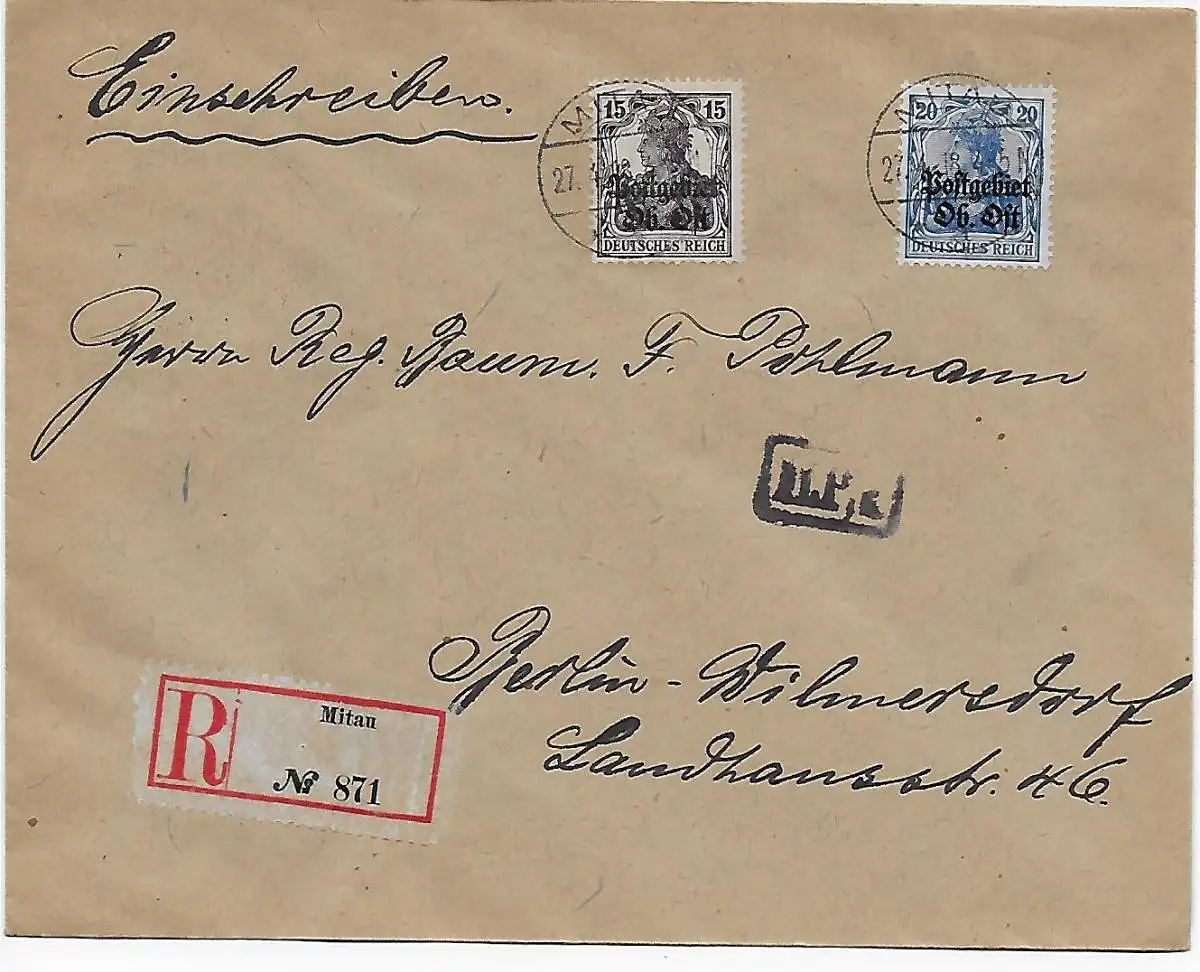 Einschreiben.
MITAU
27.
15 15
Postgebiet
Ob. Ost
DEUTSCHES REICH
MITAU
27. 18. 4-5 N
20 20
Postgebiet
Ob. Ost
DEUTSCHES REICH
Herrn Reg. Baum. F. Pöhlmann
Berlin-Wilmersdorf
Landhausstr. 46.
R
Mitau
№ 871